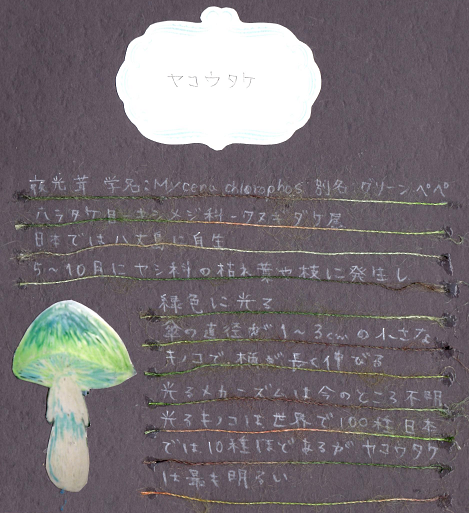 ヤコウタケ
夜光茸 学名:Mycena chlorophos 別名:グリーンペペ
ハラタケ目-キシメジ科-クヌギタケ属
日本では八丈島に自生
5~10月にヤシ科の枯れ葉や枝に発生し
緑色に光る
傘の直径が1~3cmの小さな
キノコで柄が長く伸びる
光るメカニズムは今のところ不明
光るキノコは世界で100種日本
では10種ほどあるがヤコウタケ
は最も明るい